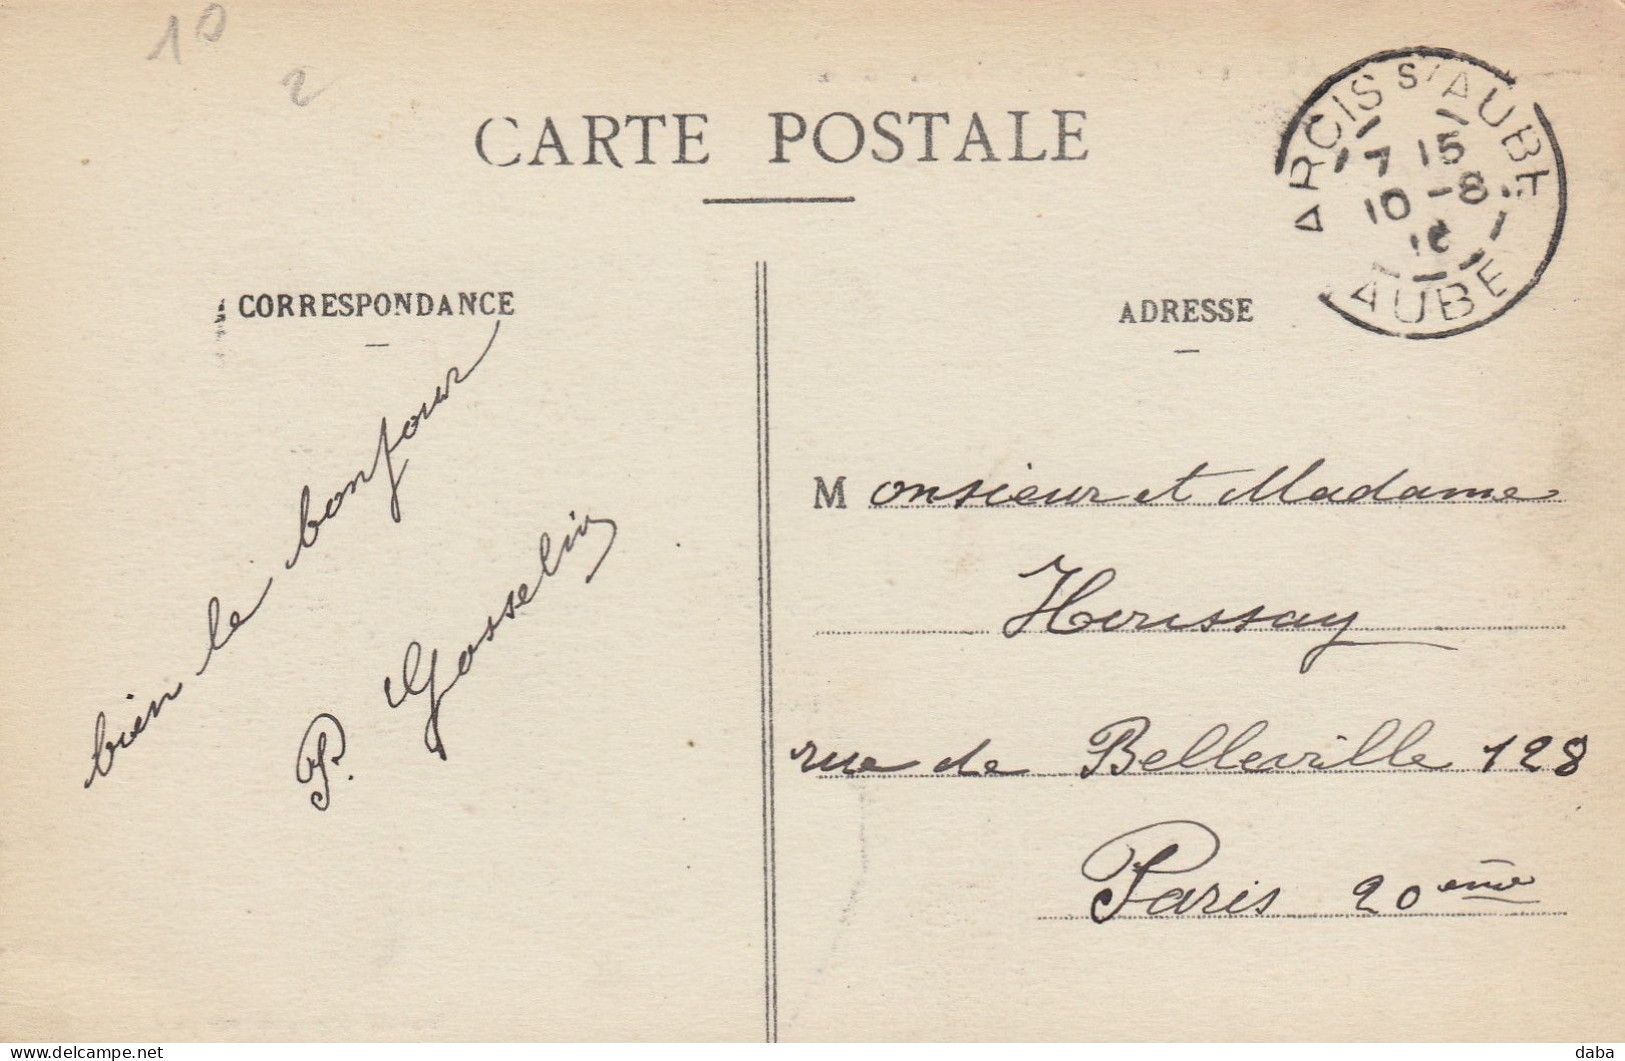 10
2
CARTE POSTALE
ARCIS S/ AUBE
7 15
10 -8
AUBE
CORRESPONDANCE
bien le bonjour
P. Gosselin
ADRESSE
Monsieur et Madame
Houssay
rue de Belleville 128
Paris 20ème
delcampe.net
daba